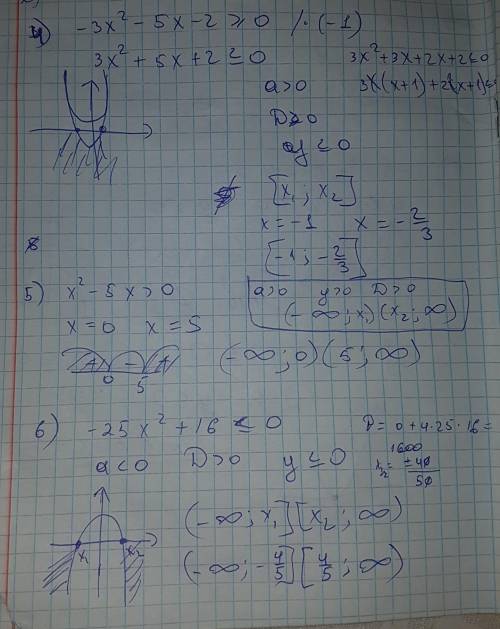 4) -3x² - 5x - 2 ≥ 0 /·(-1)
3x² + 5x + 2 ≤ 0
3x²+3x+2x+2≤0
a>0
3x(x+1)+2(x+1)≤
D>0
y ≤ 0
[x₁ ; x₂]
x = -1 x = -2/3
[-1 ; -2/3]
5) x² - 5x > 0
a>0 y>0 D>0
(-∞ ; x₁) (x₂ ; ∞)
x = 0 x = 5
+ - +
0 5
(-∞ ; 0) (5 ; ∞)
6) -25x² + 16 ≤ 0
D = 0 + 4·25·16 =
1600
a<0 D>0 y ≤ 0
±40
50
(-∞ ; x₁] [x₂ ; ∞)
x₁ x₂
(-∞ ; -4/5] [4/5 ; ∞)